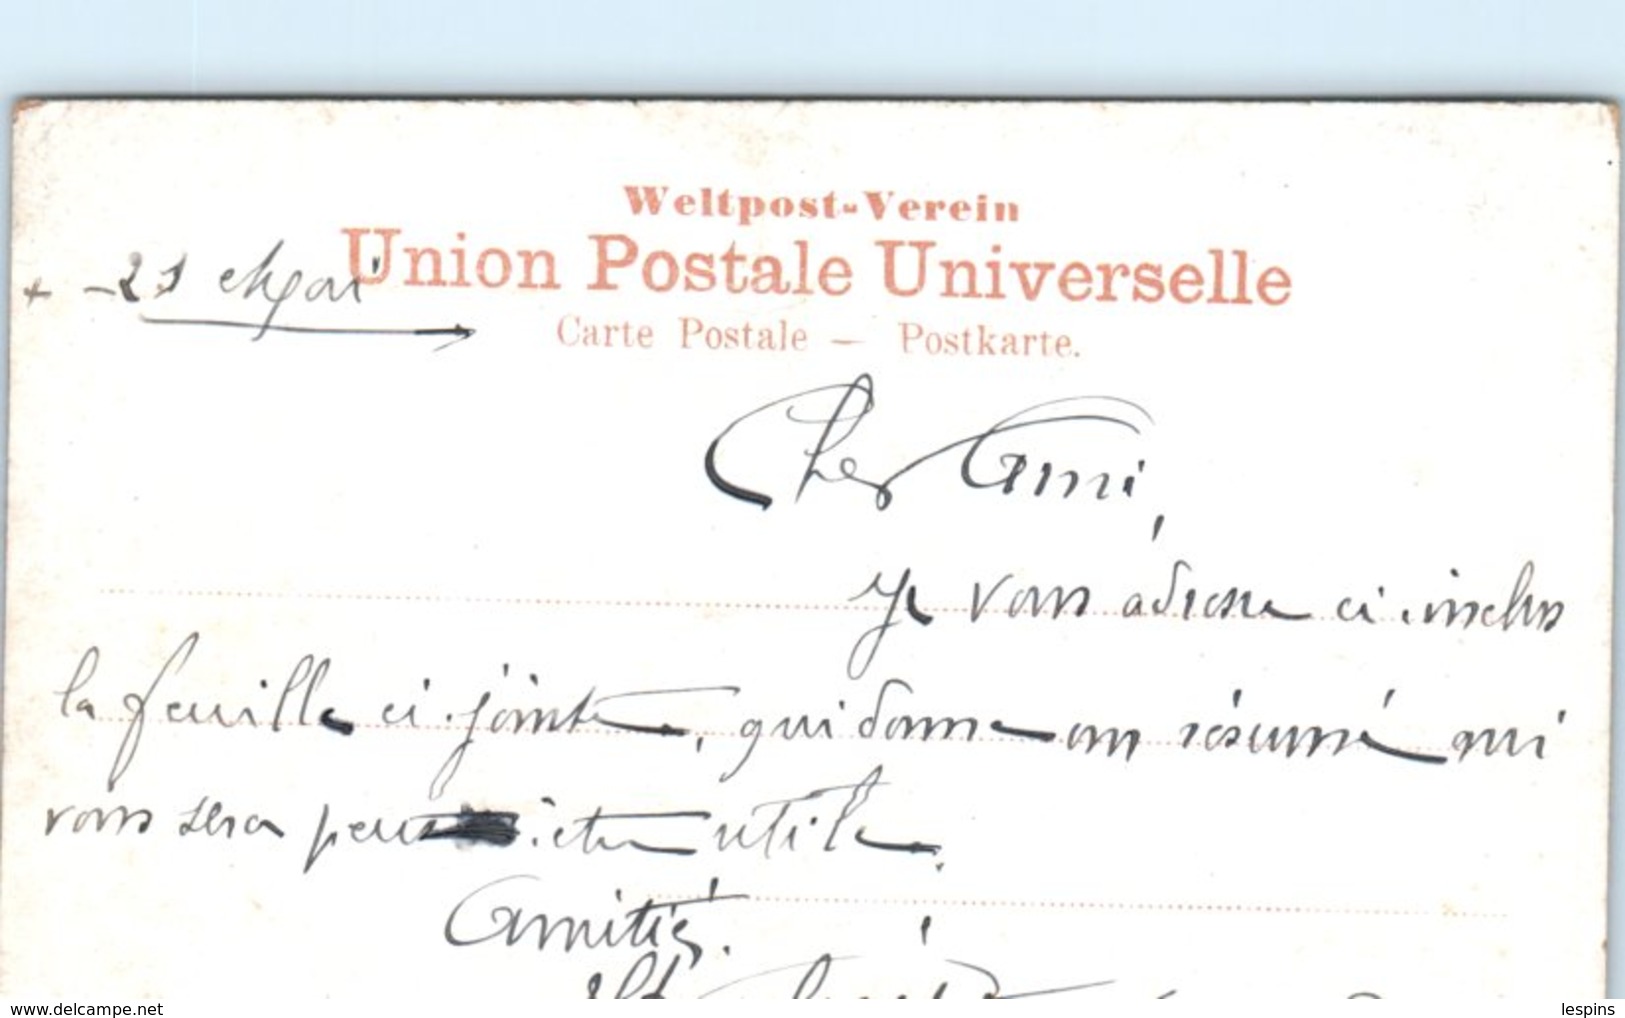 Weltpost-Verein
Union Postale Universelle
+ - 21 Mai
Carte Postale — Postkarte.
Cher Ami,
Je vous adresse ci-inclus
la feuille ci-jointe, qui donne un résumé qui
vous sera peut-etre utile.
Amitié.
www.delcampe.net
lespins